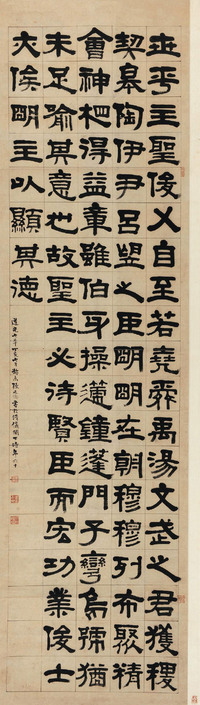 世平主聖俊乂自至若堯舜禹湯文武之君獲稷
契皋陶伊尹呂望之臣朙朙在朝穆穆列布聚精
會神相得益章雖伯牙操遞鍾蓬門子彎烏號猶
未足喻其意也故聖主必待賢臣而宏功業俊士
亦俟朙主以顯其德
道光七年丁亥